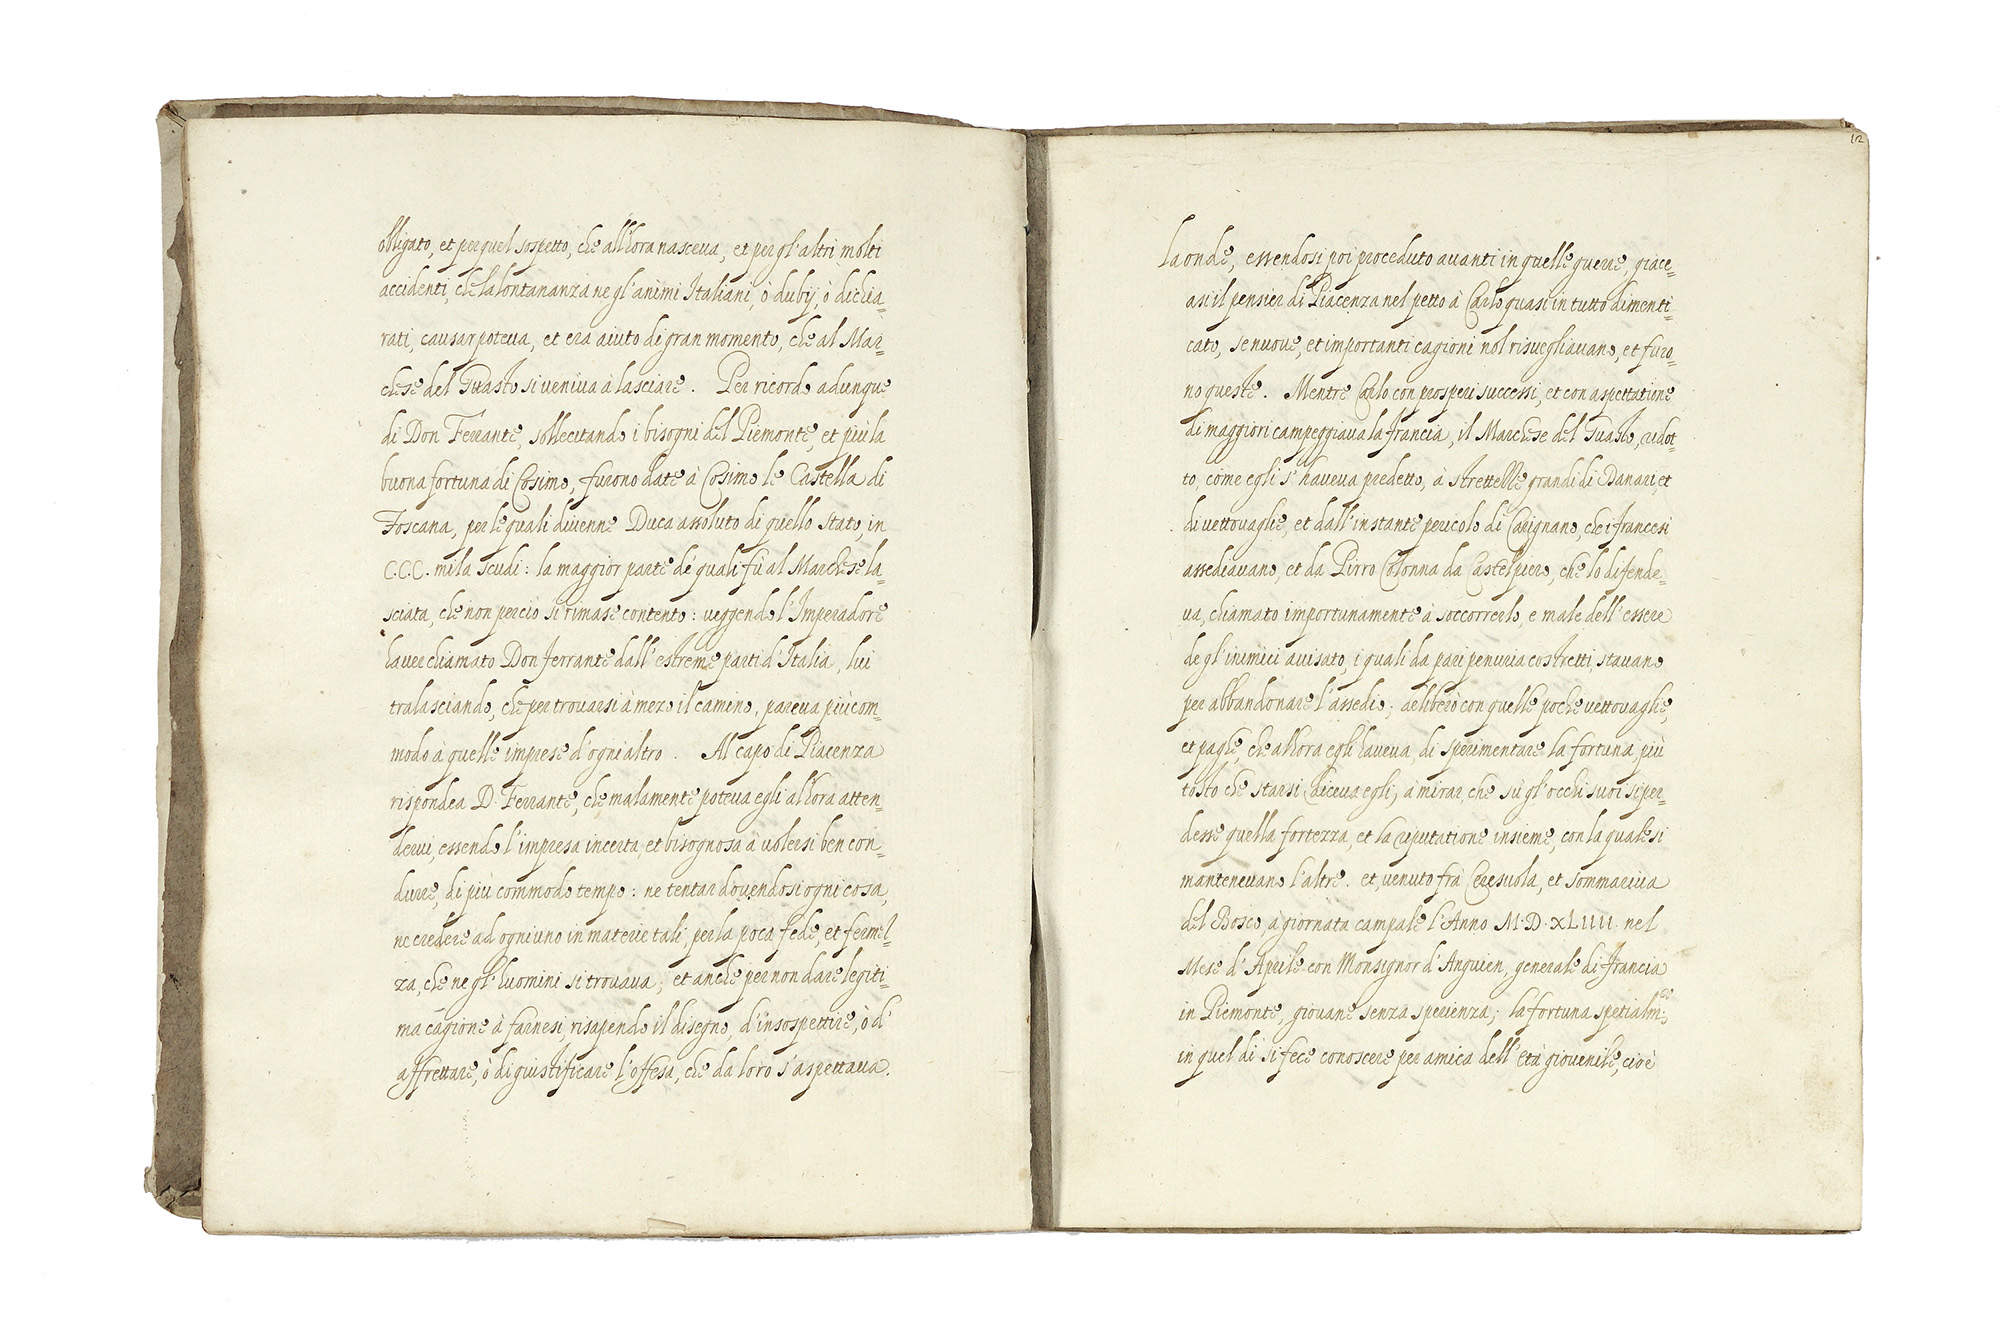 obligato, et per quel sospetto, che allhora nasceva, et per gl'altri molti
accidenti, che la lontananza ne gl'animi Italiani, ò dubij, ò dichia=
rati, causar poteva, et era aiuto di gran momento, che al Mar=
chese del Guasto si veniva à lasciare. Per ricordo adunque
di Don Ferrante, sollecitando i bisogni del Piemonte, et più la
buona fortuna di Cosimo, furono date à Cosimo le Castella di
Toscana, per le quali divenne Duca assoluto di quello stato, in
C.C.C. mila scudi: la maggior parte de quali fù al Marchese la=
sciata, che non perciò si rimase contento: veggendo l'Imperadore
haver chiamato Don Ferrante dall'estreme parti d'Italia, lui
tralasciando, che per trovarsi à mezo il camino, pareva più com=
modo à quelle imprese d'ogni altro. Al capo di Piacenza
rispondea D. Ferrante, che malamente poteva egli alhora atten=
dervi, essendo l'impresa incerta, et bisognosa à volersi ben con=
durre, di più commodo tempo: ne tentar dovendosi ogni cosa,
ne credere ad ogniuno in materie tali, per la poca fede, et fermez=
za, che ne gl'huomini si trovava; et anche per non dare legiti=
ma cagione à farnesi, risapendo il disegno, d'insospettire, ò d'
affrettare, ò di giustificare l'offesa, che da loro s'aspettava.
12
La onde, essendosi poi proceduto avanti in quelle guerre, giace=
asi il pensier di Piacenza nel petto à Carlo quasi in tutto dimenti=
cato, se nuove, et importanti cagioni nol risvegliavano, et furo=
no queste. Mentre Carlo con prosperi successi, et con aspettatione
di maggiori campeggiava la francia, il Marchese del Guasto, ridot=
to, come egli s'haveva predetto, à strettezze grandi di Danari, et
di vettovaglie, et dall'instante pericolo di Carignano, che i francesi
assediavano, et da Pirro Colonna da Castelpiero, che lo difende=
va, chiamato importunamente à soccorrerlo, e male dell'essere
de gl'inimici avisato, i quali da pari penuria costretti, stavano
per abbandonare l'assedio; deliberò con quelle poche vettovaglie,
et paghe, che allora egli haveva, di sperimentare la fortuna, più
tosto che starsi (diceva egli) à mirar, che sù gl'occhi suoi si per=
desse quella fortezza, et la riputatione insieme, con la quale si
mantenevano l'altre. et, venuto frà Ceresuola, et Sommariva
del Bosco, a giornata campale l'Anno M.D.XLIIII. nel
Mese d'Aprile con Monsignor d'Anguien, generale di francia
in Piemonte, giovane senza sperienza; la fortuna spetialm.te
in quel di si fece conoscere per amica dell'Età giovenile, cioè